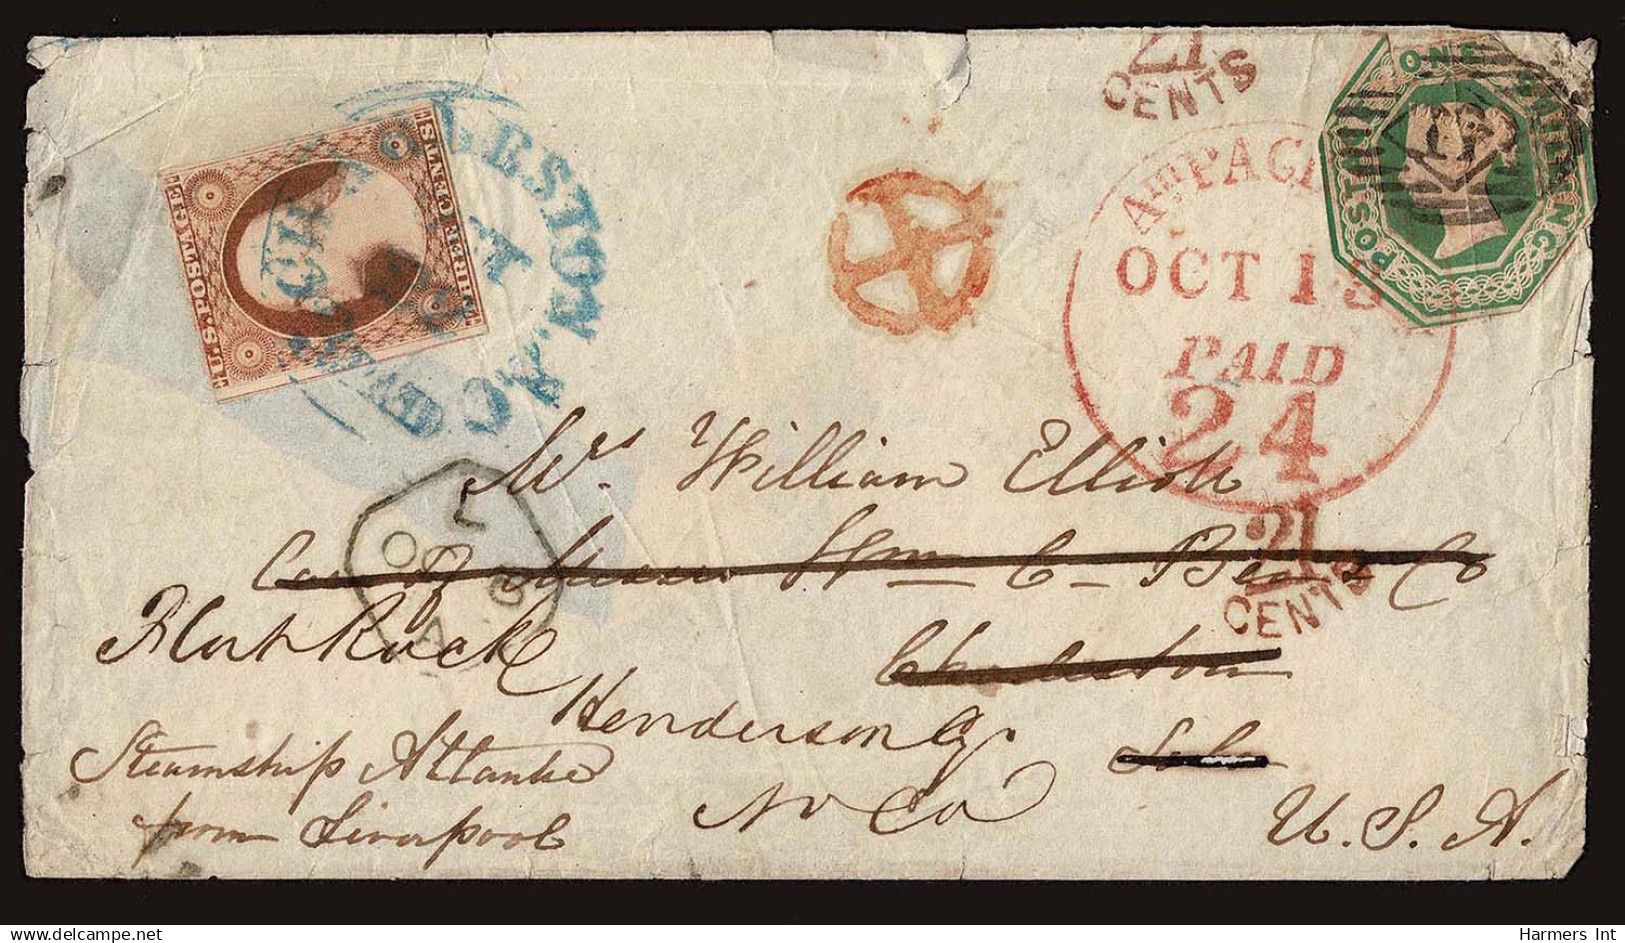 21
CENTS
ONE SHILLING
POSTAGE
THREE CENTS
U.S. POSTAGE
CHARLESTON
S.CA.
Am PACKET
OCT 18
PAID
24
Mrs. William Elliott
Care of Wm C. Bee & Co
21
CENTS
Flat Rock
Charleston
Henderson
So Ca
Steamship Atlantic
from Liverpool
No Ca
U. S. A.
Harmers Int